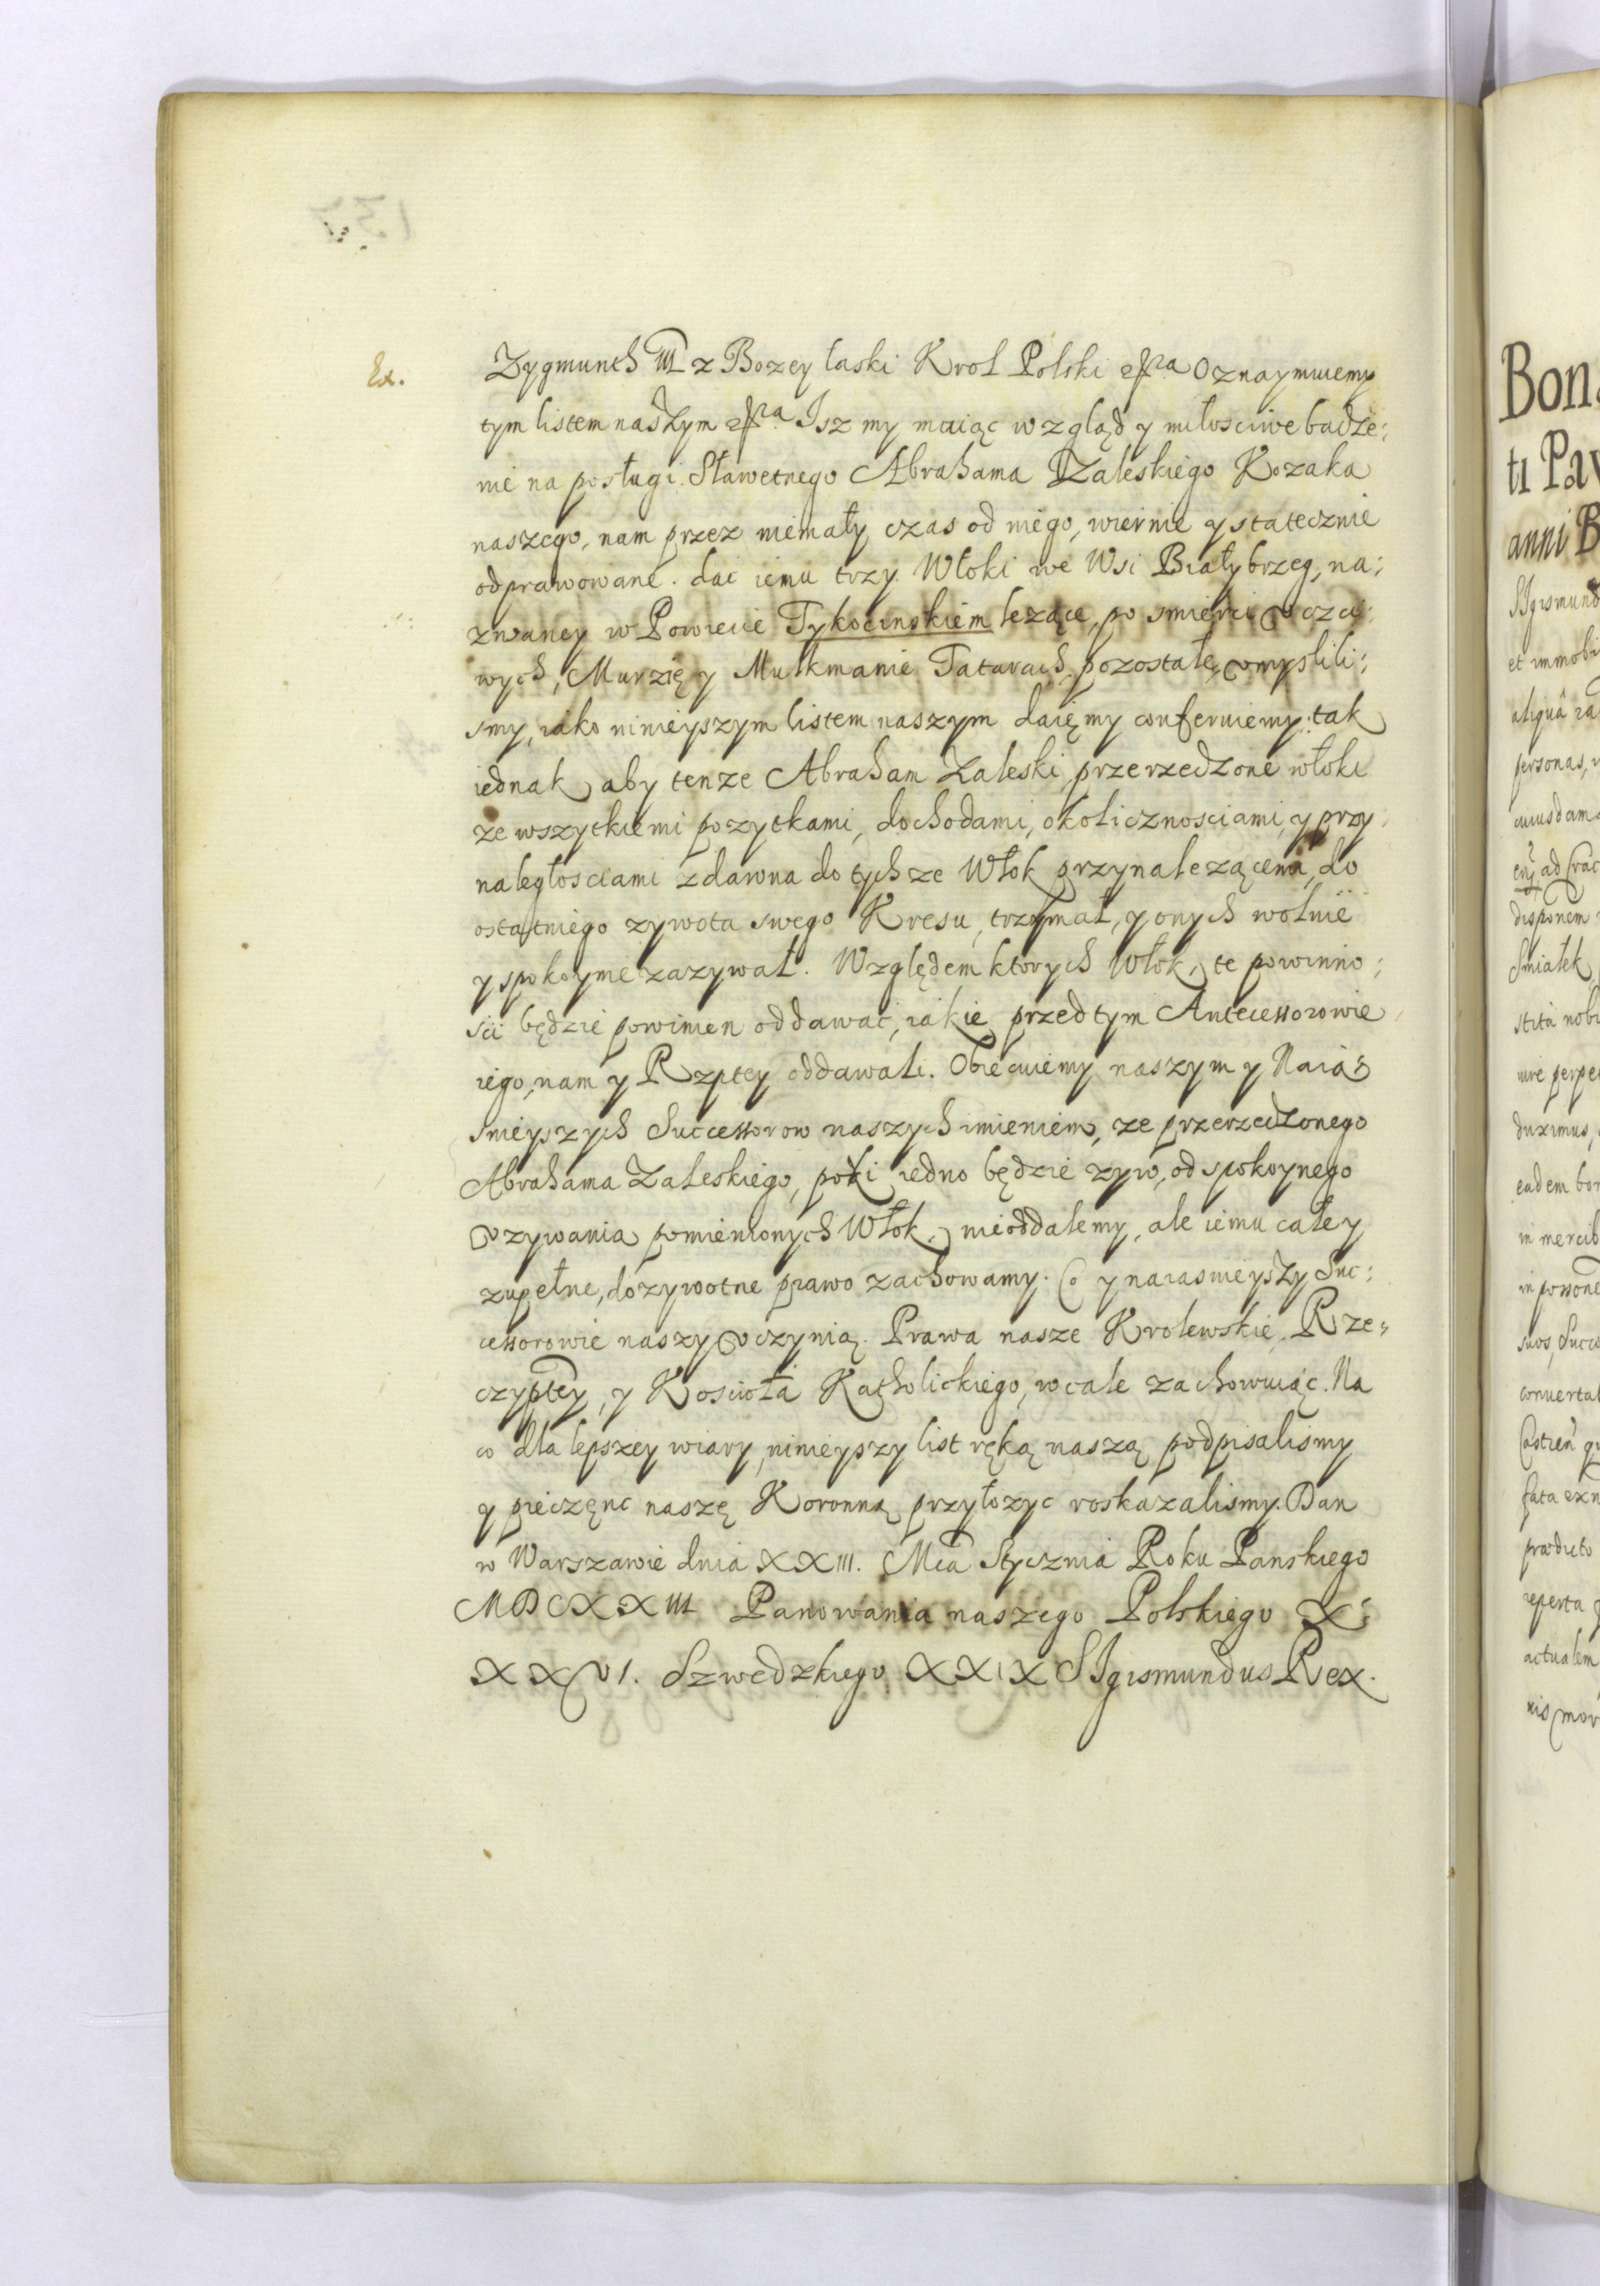 Ex.
Zygmunth III z Bozey łaski Krol Polski etca Oznaymuiemy
tym listem naszym etca Isz my maiąc wzgląd y miłosciwe bacze:
nie na posługi Sławetnego Abrahama Zaleskiego Kozaka
naszego, nam przez niemały czas od niego, wiernie y statecznie
odprawowane. dac iemu trzy Włoki we Wsi Białybrzeg, na:
zwaney w Powiecie Tykocinskiem lezące, po smierci vczci:
wych, Murzię y Mulkmanie Tatarach, pozostałe, vmyslili:
smy, iako ninieyszym listem naszym daięmy conferuiemy: tak
iednak, aby tenze Abraham Zaleski, przerzeczone włoki
ze wszytkiemi pozytkami, dochodami, okolicznosciami, y przy:
należłosciami zdawna do tychze Włok przynalezącemi, do
ostatniego zywota swego Kresu, trzymał, y onych wolnie
y spokoynie zazywał. Względem ktorych Włok, te powinno:
sci będzie powinien oddawać, iakie przedtym Antecessorowie
iego, nam y Rzptey oddawali. Obiecuiemy naszym y Naia:
snieyszych Successorow naszych imieniem, ze przerzeczonego
Abrahama Zaleskiego, poki iedno będzie zyw, od spokoynego
vzywania pomienionych Włok, nieoddalemy, ale iemu cale y
zupełne, dozywotne prawo zachowamy. Co y naiasnieyszy Suc:
cessorowie naszy vczynią. Prawa nasze Krolewskie, Rze:
czyptey, y Koscioła Katholickiego, wcale zachowuiąc. Na
co dla lepszey wiary, ninieyszy list ręką naszą podpisalismy
y pieczęnc naszę Koronną przyłozyc roskazalismy. Dan
w Warszawie dnia XXIII. Mca Stycznia Roku Panskiego
MDCXXIII Panowania naszego Polskiego X:
XXVI. Szwedzkiego XXIX SIgismundus Rex.